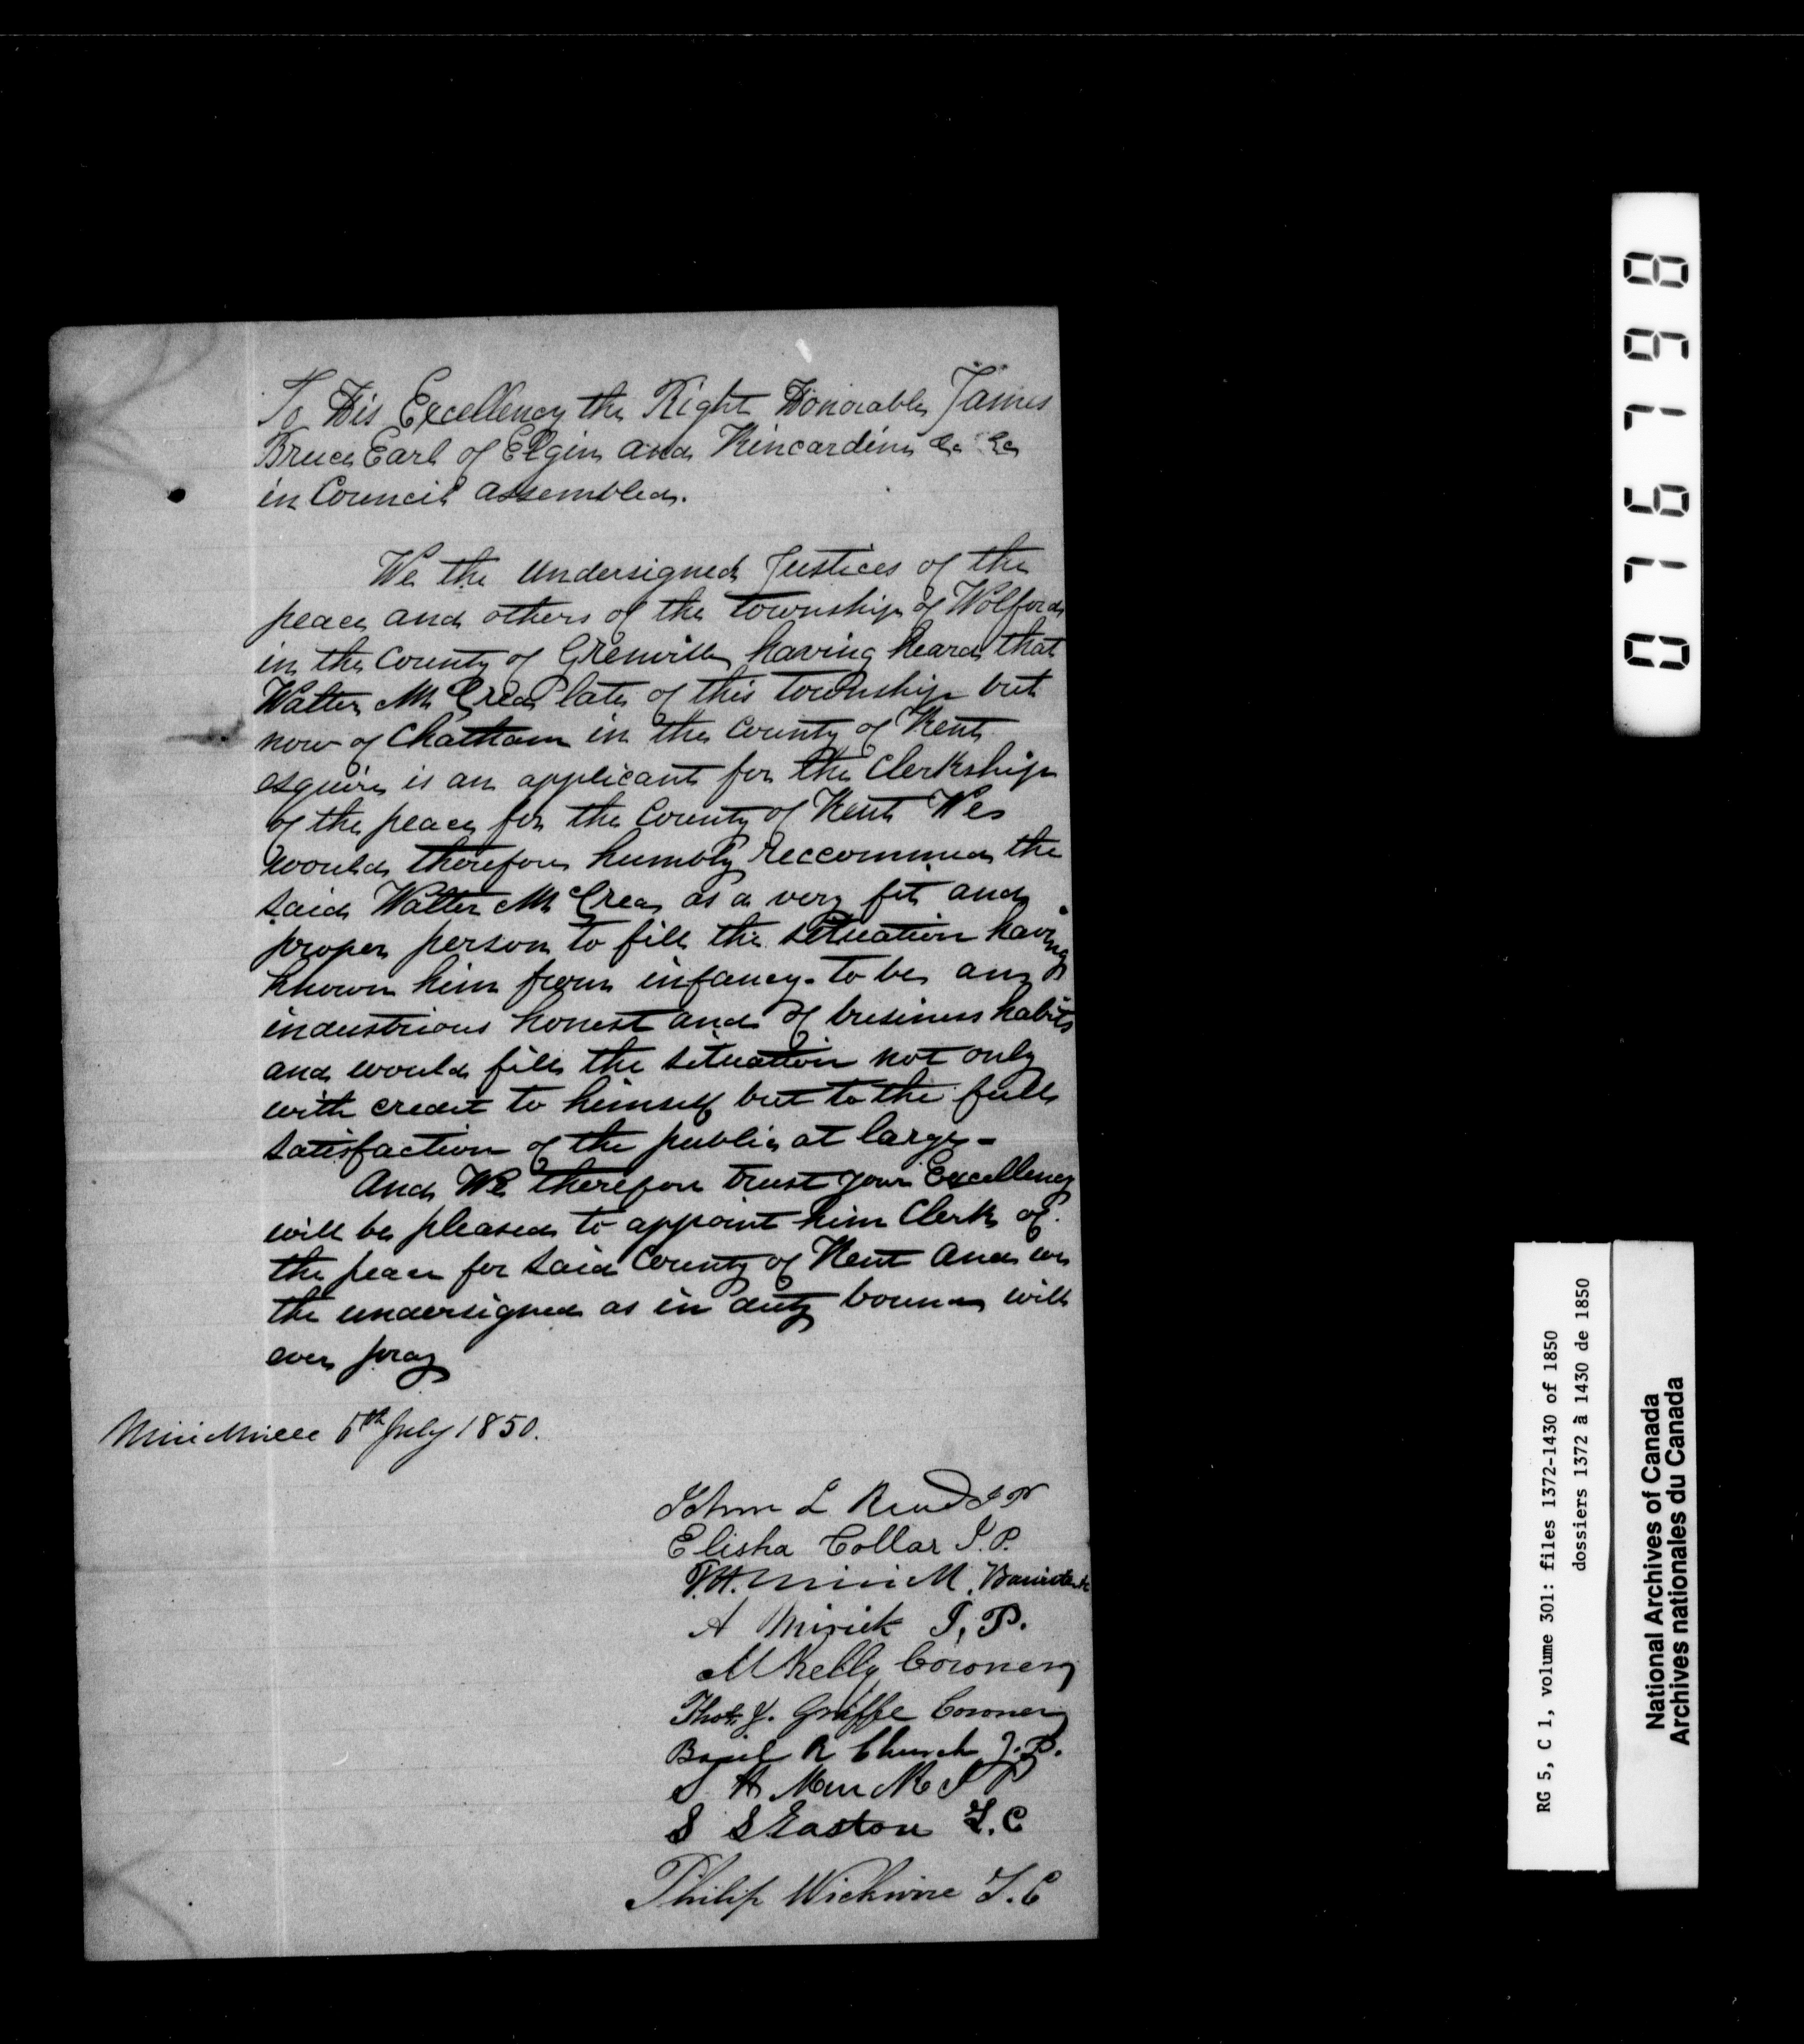 To His Excellency the Right Honorable James
Bruce Earl of Elgin and Kincardine &c &c
in Council assembled.
We the undersigned Justices of the
peace and others of the township of Wolford
in the County of Grenville having heard that
Walter McCrea late of this township but
now of Chatham in the County of Kent
esquire is an applicant for the Clerkship
of the peace for the County of Kent We
would therefore humbly reccommend the
said Walter McCrea as a very fit and
proper person to fill the situation having
known him from infancy to be an
industrious honest and of business habits
and would fill the situation not only
with credit to himself but to the full
satisfaction of the public at large-
And We therefore trust your Excellency
will be pleased to appoint him Clerk of
the peace for said County of Kent And we
the undersigned as in duty bound will
ever pray
5th July 1850.
John L Read J P
Elisha Collar J.P.
A Mirick J.P.
M Kelly Coroner
Thos. Y. Griffe Coroner
Basil R Church J.P.
S H J P
S S Easton T.C
Philip Wickwire T.C
076798
RG 5, C 1, volume 301: files 1372-1430 of 1850
dossiers 1372 à 1430 de 1850
National Archives of Canada
Archives nationales du Canada